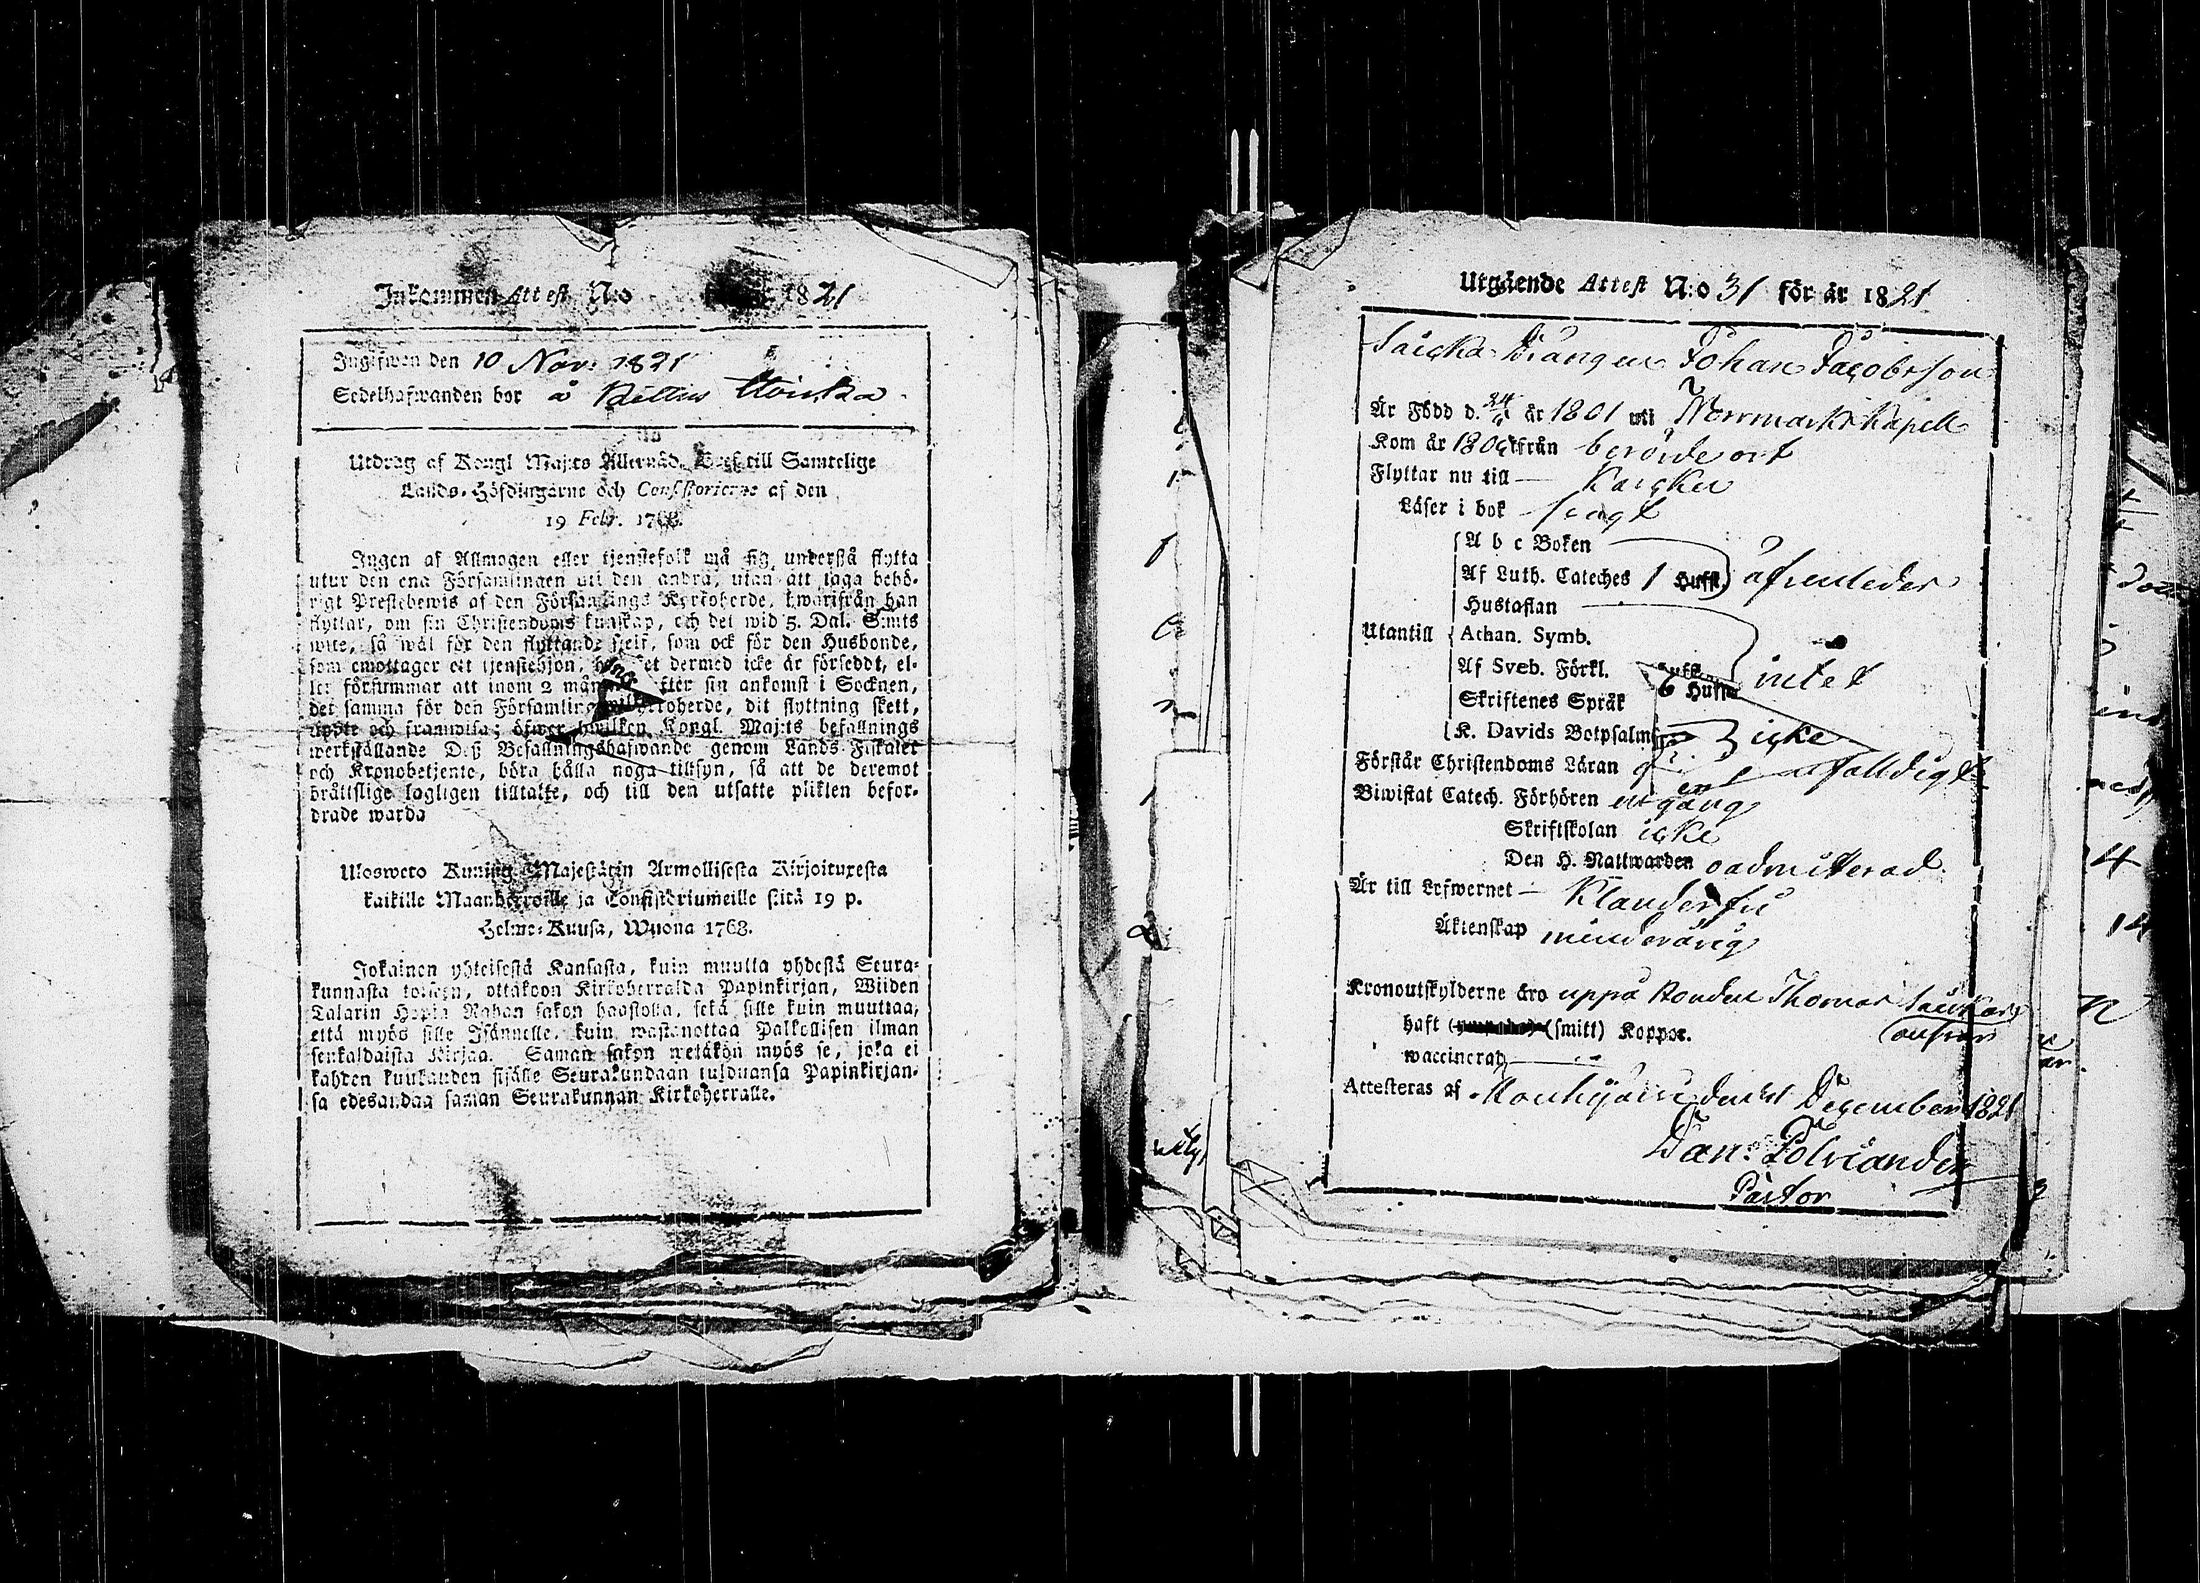 Inkommen Attest N:o 1821
Ingifwen den 10 Nov: 1821
Sedelhafwanden bor å
Utdrag af Kongl Maj:ts Allernåd. Bref till Samtelige
Lands-Höfdingarne och Consistorierne af den
19 Febr. 1768.
Ingen af Allmogen eller tjenstefolk må sig understå flytta
utur den ena Församlingen uti den andra, utan att taga behö-
rigt Prestebewis af den Församlings Kyrkoherde, hwarifrån han
flyttar, om sin Christendoms kunskap, och det wid 5. Dal. S:mts
wite, så wäl för den flyttande sjelf, som ock för den Husbonde,
som emottager ett tjenstehjon, dermed icke är försedt, el-
ler försummar att inom 2 månader efter sin ankomst i Socknen,
det samma för den Församlings Kyrkoherde, dit flyttning skett,
uppte och framwisa; öfwer hwilken Kongl Maj:ts befallnings
werkställande Deß Befallningshafwande genom Lands-Fiskaler
och Kronobetjente, böra hålla noga tillsyn, så att de deremot
bråttslige lagligen tilltalte, och till den utsatte plikten befor-
drade warda
Ulosweto Kuning. Majestätin Armollisesta Kirjoituxesta
kaikille Maanherroille ja Consistoriumeille siitä 19 p.
Helme-Kuusa, Wuona 1768.
Jokainen yhteisestä Kansasta, kuin muulla yhdestä Seura-
kunnasta toiseen, ottakoon Kirkoherralda Papinkirjan, Wiiden
Talarin Hopia Rahan sakon haastolla, sekä sille kuin muuttaa,
että myös sille Isännelle, kuin wastanottaa Palkollisen ilman
senkaldaista Kirjaa. Saman sakon wetäkön myös se, joka ei
kahden kuukauden sisälle Seurakundaan tulduansa Papinkirjan-
sa edesandaa saman Seurakunnan Kirkoherralle.
Utgående Attest N:o 31 för år 1821
Drängen Johan Jacobsson
Är Född d. 24 år 1801 uti Norrmarks Kapell
Kom år 180 ifrån berörde ort
Flyttar nu till
Läser i bok swagt
A b c Boken
Af Luth. Cateches 1 Huffst. afwenledes
Hustaflan
Utantill Athan. Symb.
Af Sveb. Förkl. intet
Skriftenes Språk 6 Huffst
K. Davids Botpsalm 3 icke
Förstår Christendoms Läran enfalldigt
Biwistat Catech. Förhören en gång
Skriftskolan icke
Den H. Nattwarden oadmitterad
Är till Lefwernet Klanderfri
Äktenskap minderårig
Kronoutskylderne äro uppå Bonden Thomas
haft (smitt) Koppor.
waccinerad
Attesteras af Mouhijärvi den December 1821
Dan: Polviander
Pastor